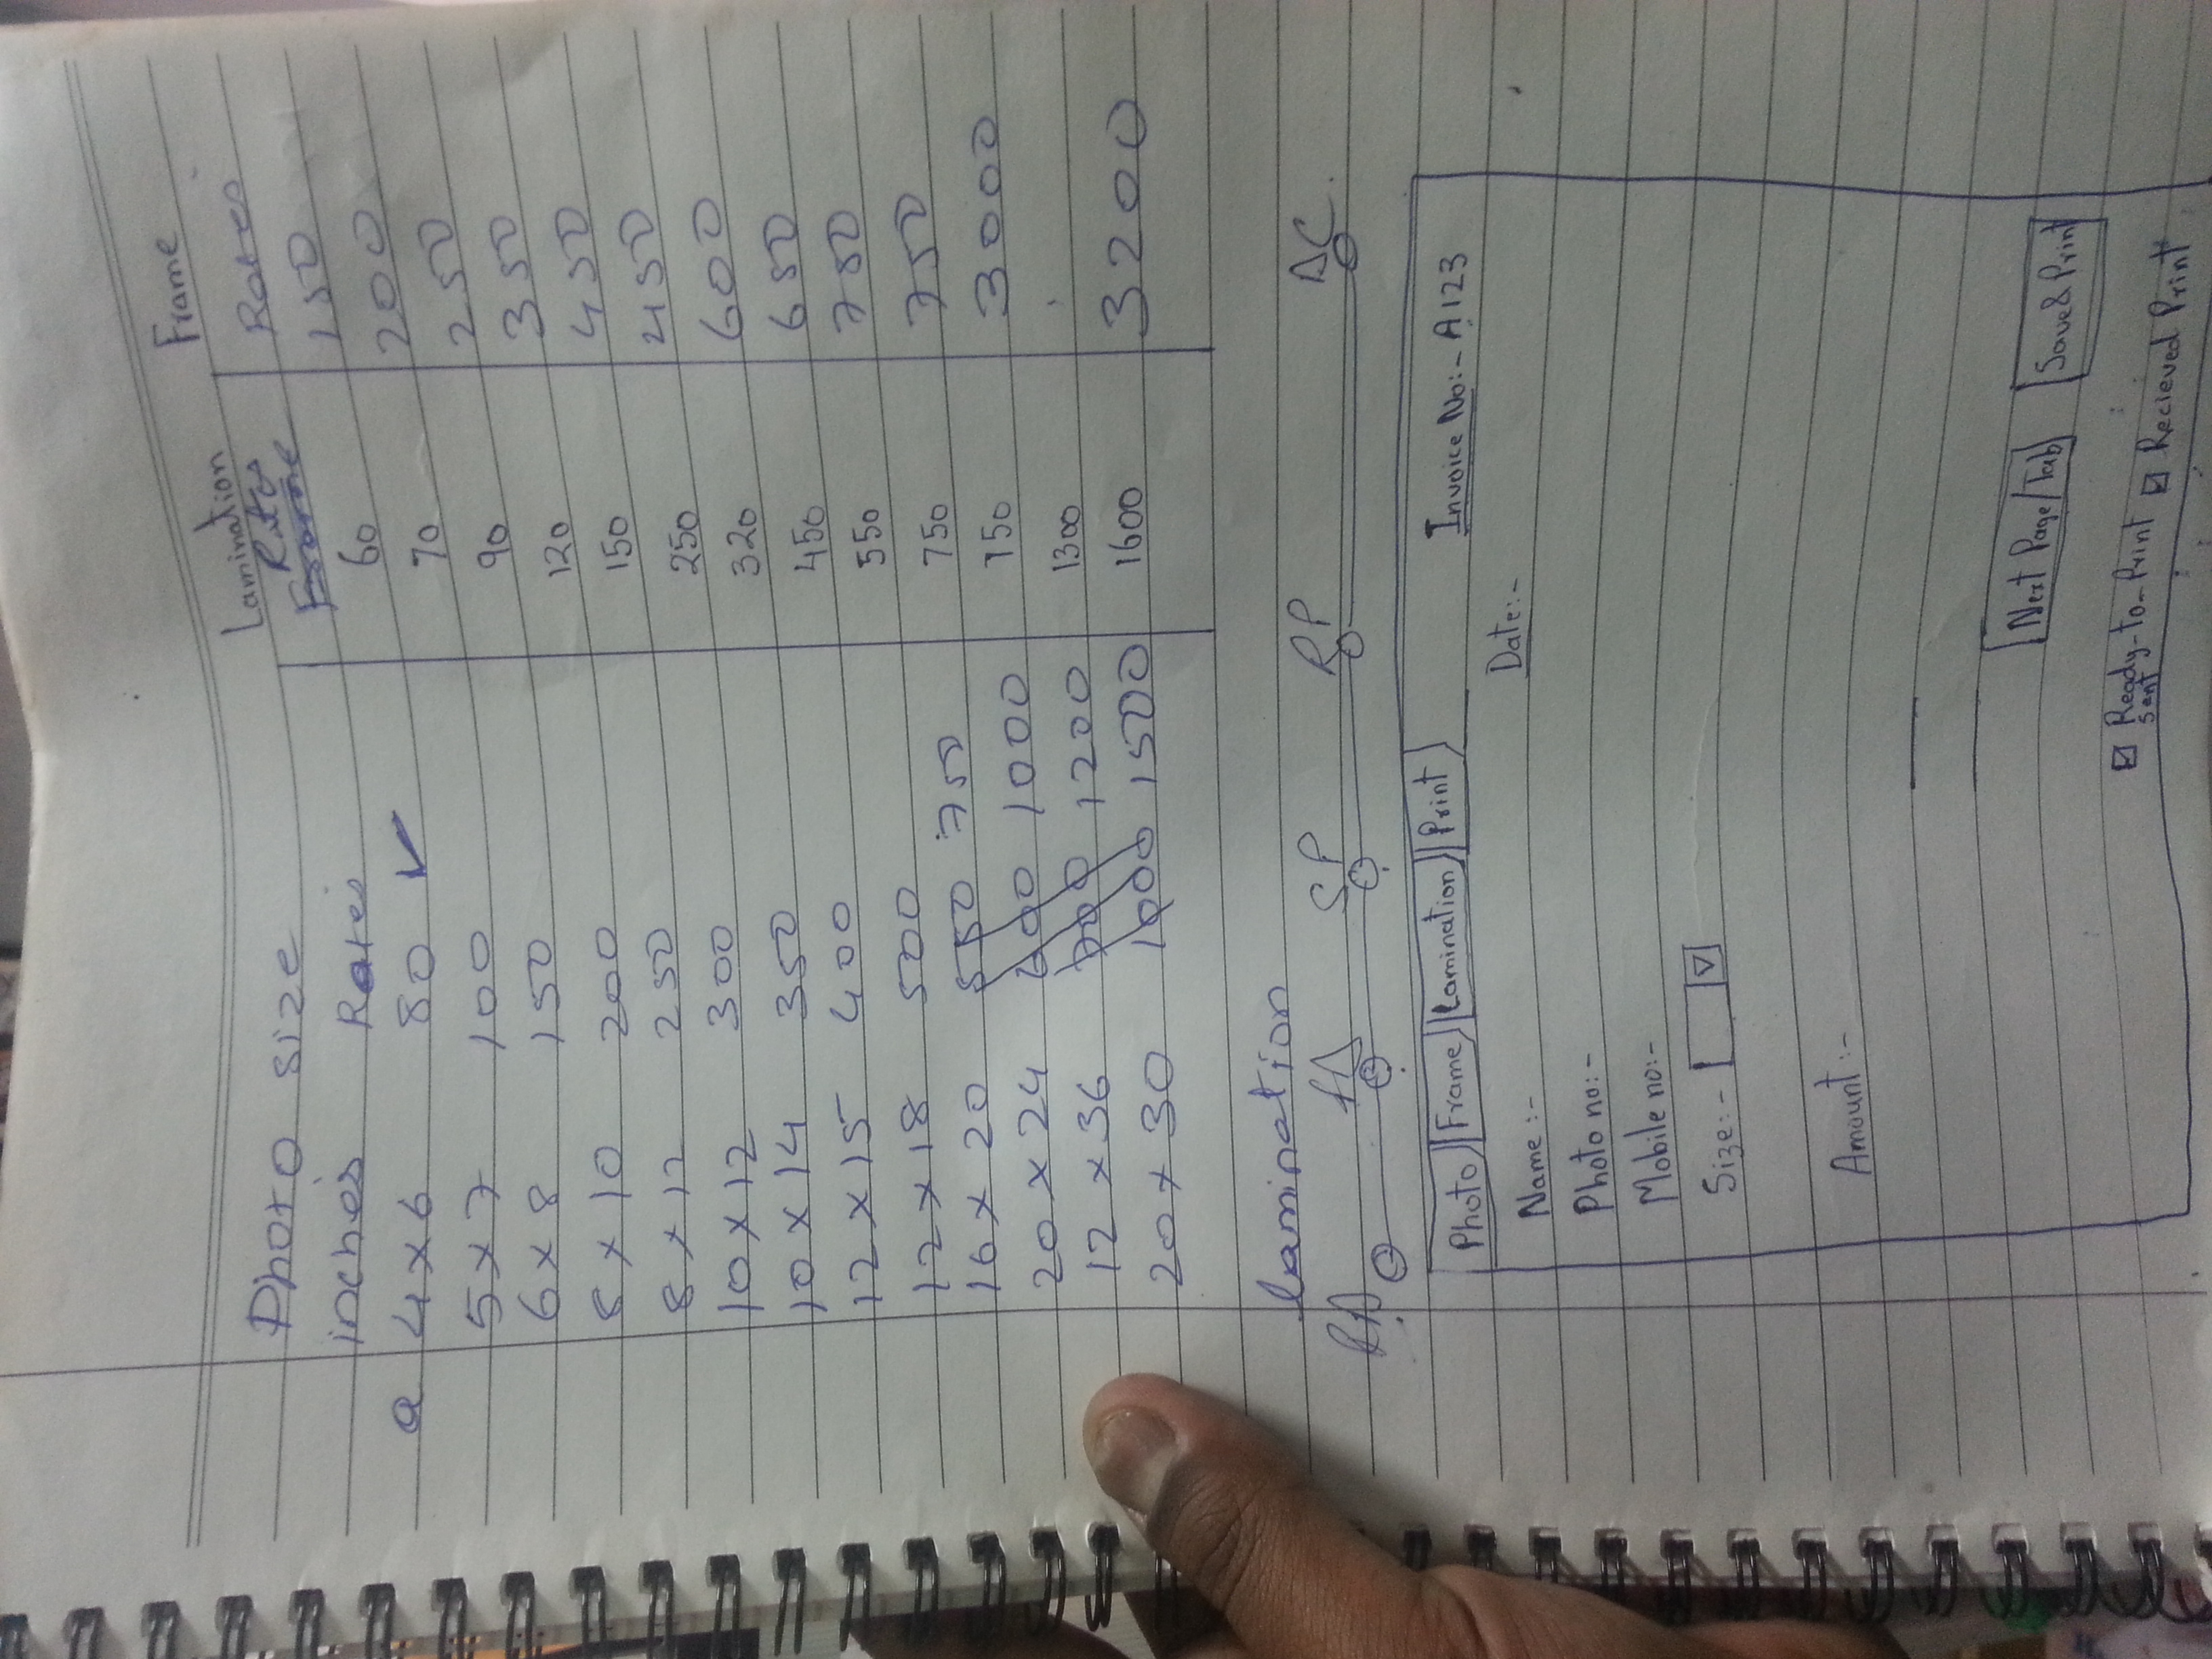 Lamination Frame
Photo size Rates Rates
inches Rates
a 4 x 6 80 ✓ 60 150
5 x 7 100 70 200
6 x 8 150 90 250
8 x 10 200 120 350
8 x 12 250 150 450
10 x 12 300 250 450
10 x 14 350 320 600
12 x 15 400 450 650
12 x 18 500 550 750
16 x 20 550 750 750 750
20 x 24 600 1000 750 3000
12 x 36 700 1200 1300
20 x 30 1000 1500 1600 3200
lamination
SP RP AC.
Photo Frame Lamination Print Invoice No:- A123
Name :- Date:-
Photo no:-
Mobile no:-
Size:-
Amount :-
Next Page/Tab Save & Print
Ready-to-Print Recieved Print
sent